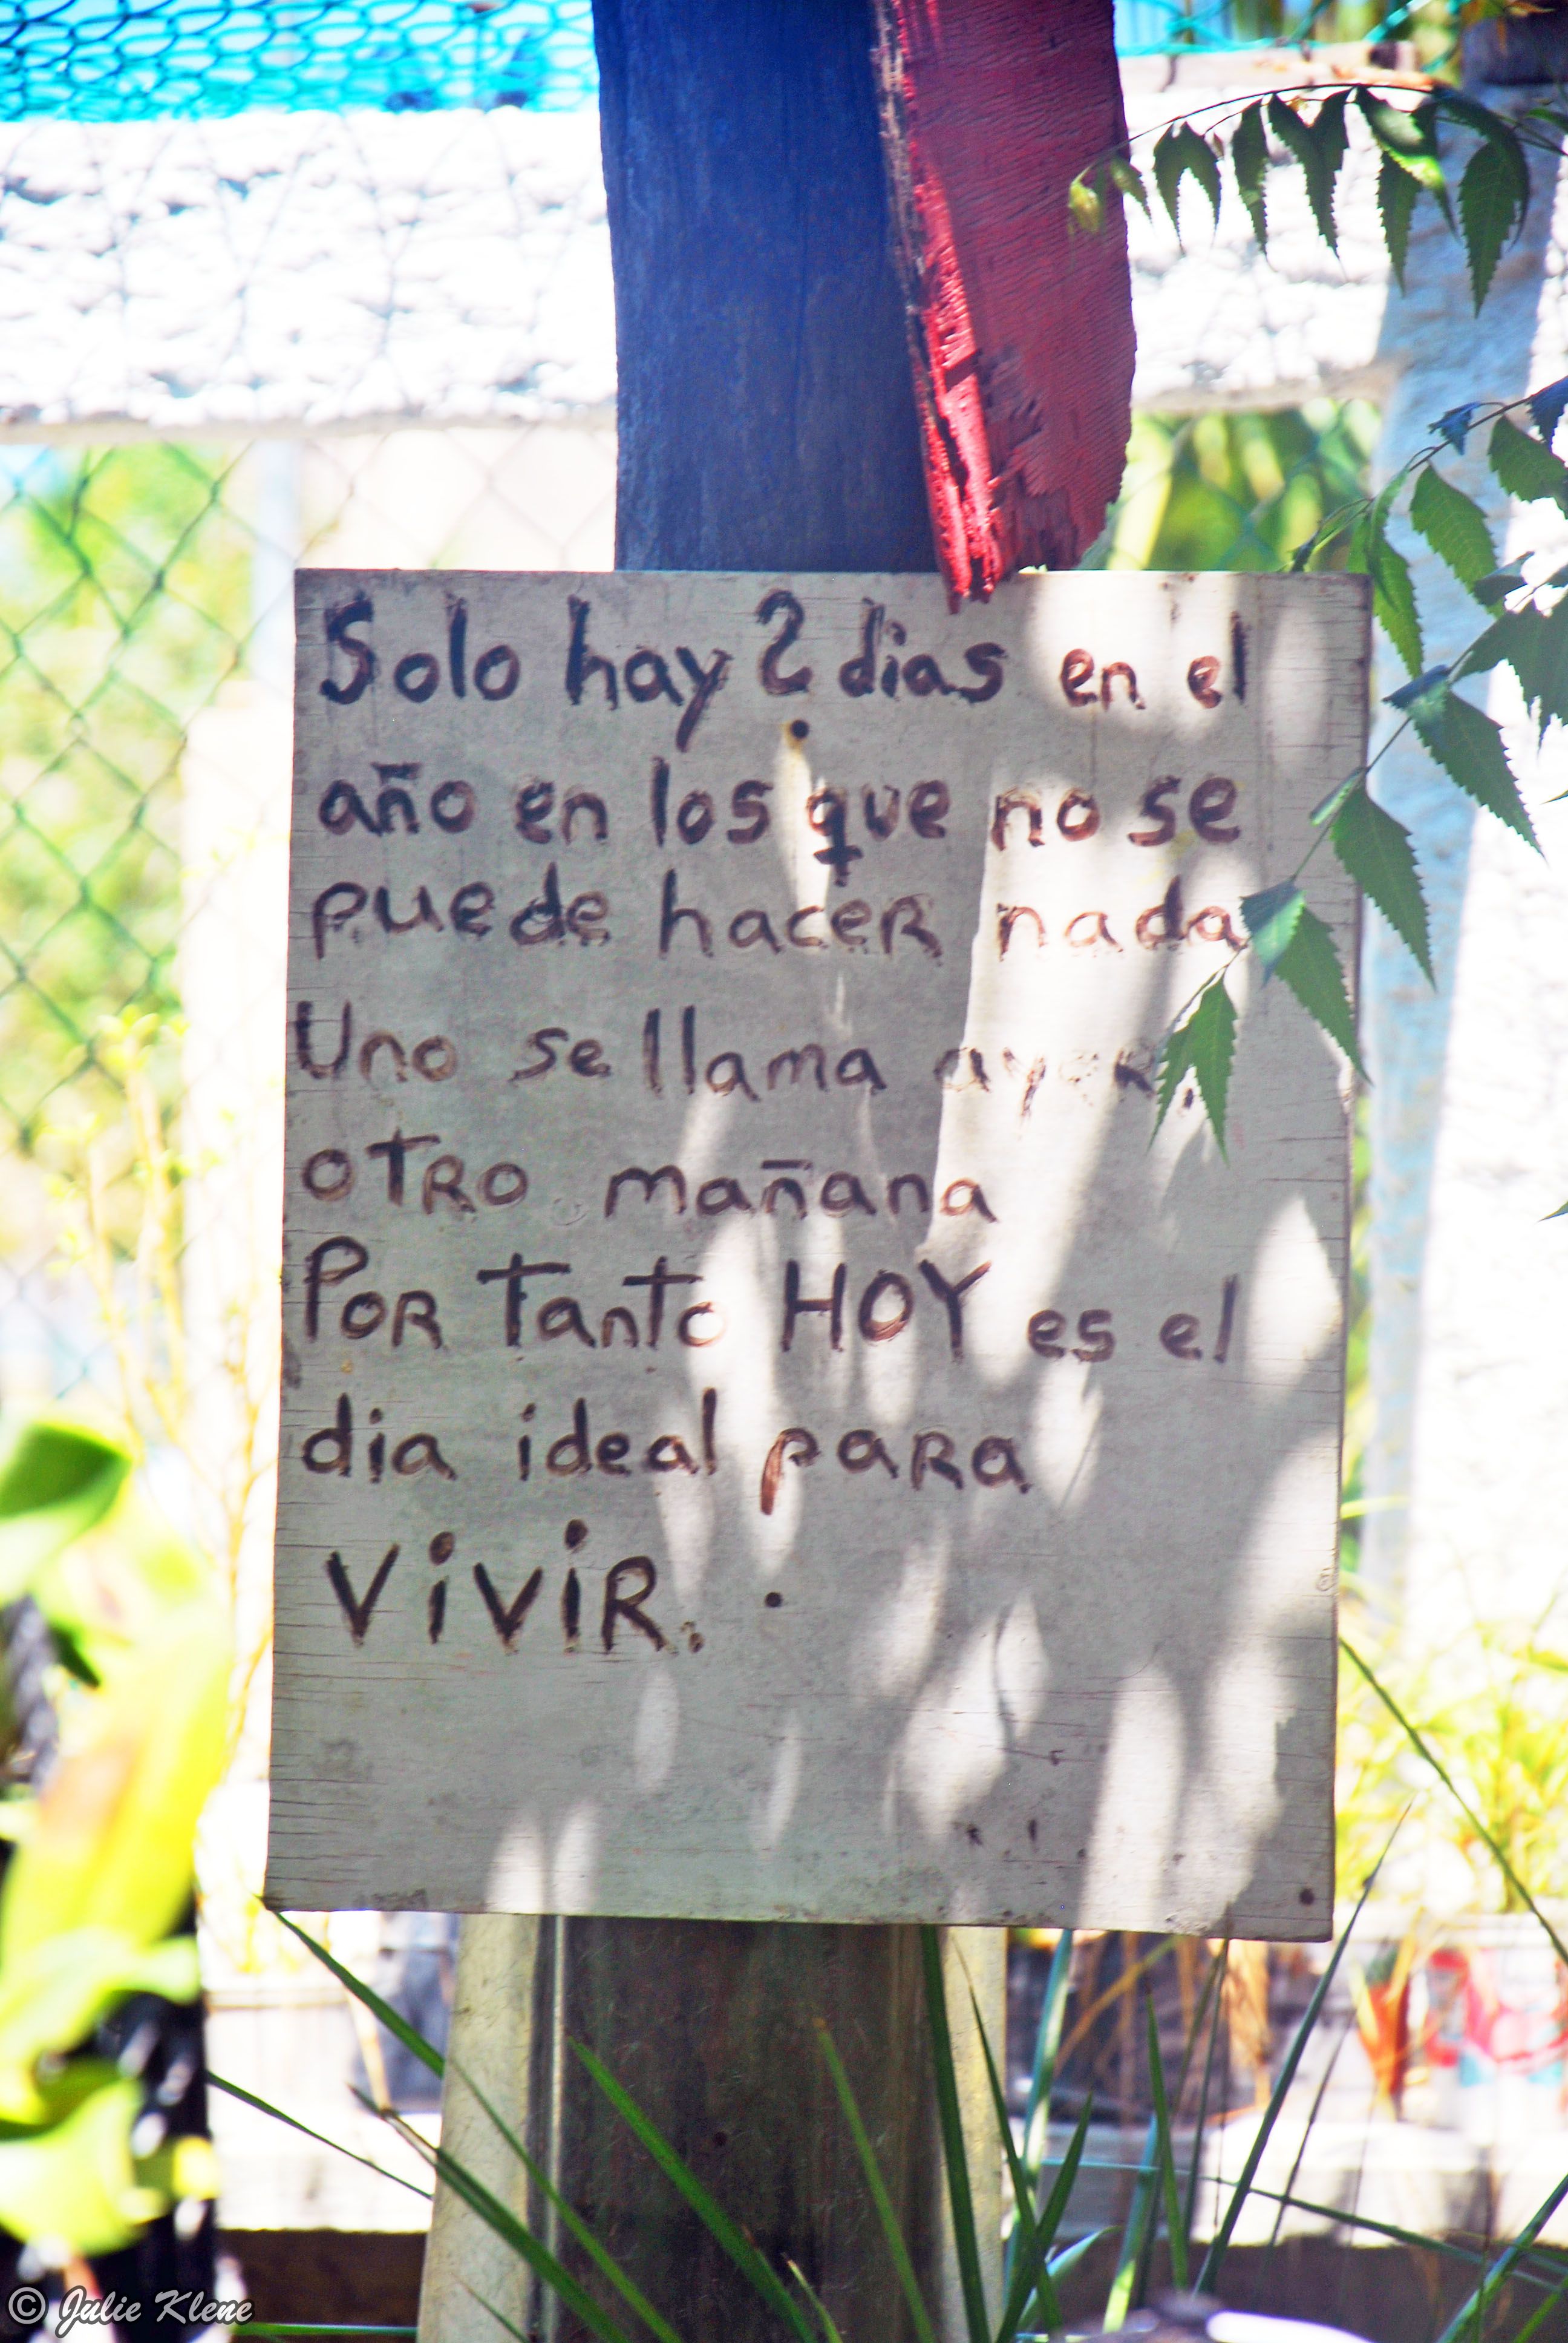 Solo hay 2 dias en el
año en los que no se
puede hacer nada
Uno se llama ayer,
otro mañana
Por tanto HOY es el
dia ideal para
ViViR.
© Julie Klene